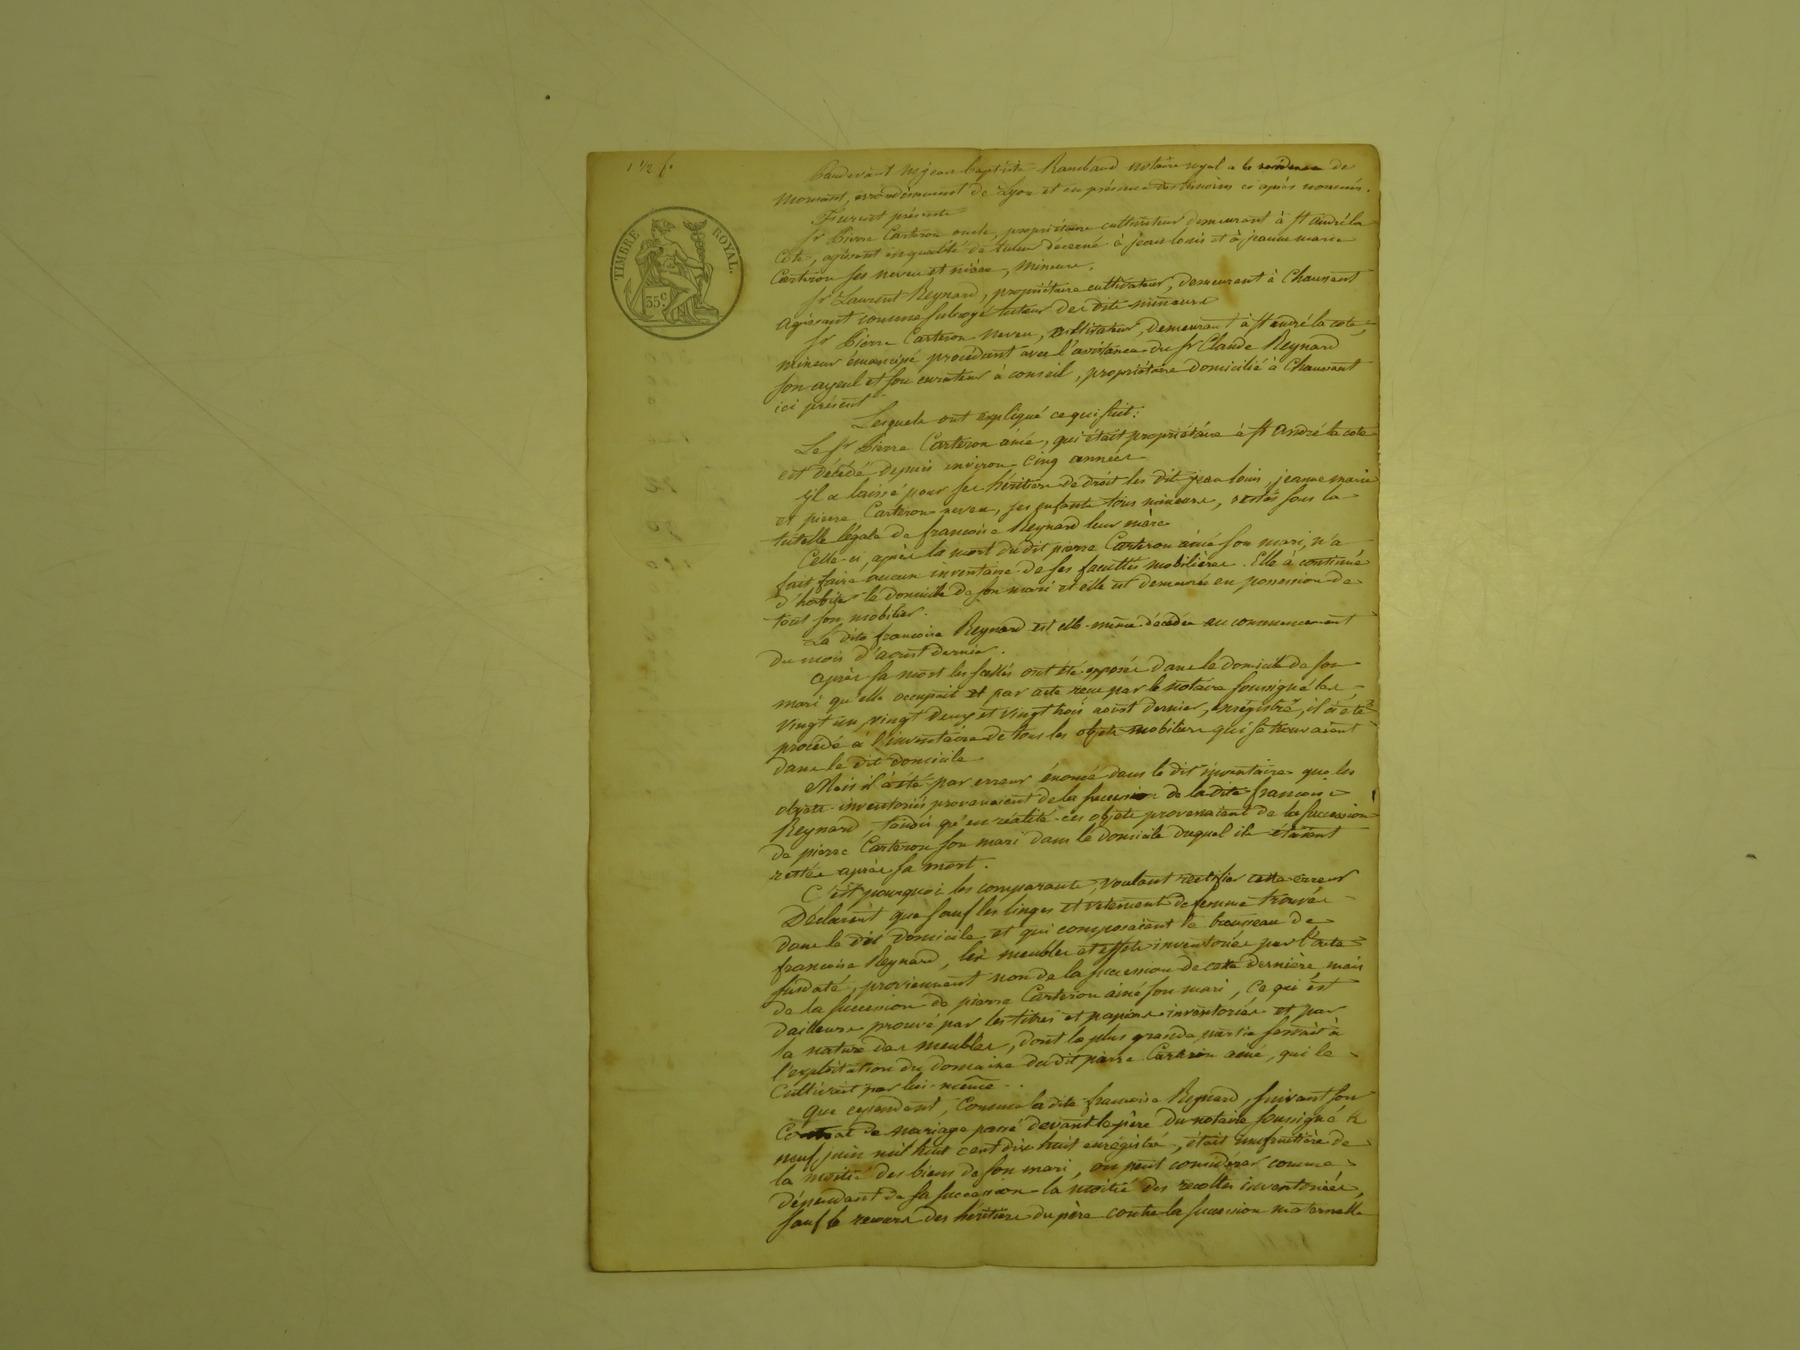 1 1/2 f.
TIMBRE ROYAL.
35c
Pardevant Me jean baptiste Rambaud notaire royal a la résidence de
Mornant, arrondissement de Lyon et en présence des témoins ci après nommés.
Furent présents
Sr Pierre Carteron oncle, propriétaire cultivateur demeurant à St andré la
Cote, agissant en qualité de tuteur décerné à jean louis et à jeanne marie
Carteron ses neveu et nièce, mineurs.
Sr Laurent Reynard, propriétaire cultivateur, demeurant à Chaussant
agissant comme subrogé tuteur des dits mineurs
Sr Pierre Carteron neveu, cultivateur, demeurant à St andré la cote,
mineur émancipé procédant avec l'assistance du Sr Claude Reynard
son ayeul et son curateur à conseil, propriétaire domicilié à Chaussant
ici présent
Lesquels ont expliqué ce qui suit:
Le Sr Pierre Carteron ainé, qui était propriétaire à St André la cote
est décédé depuis environ cinq années
il a laissé pour ses héritiers de droit les dits jean louis, jeanne marie
et pierre Carteron neveu, ses enfants tous mineurs, restés sous la
tutelle légale de françoise Reynard leur mère
Celle-ci, après la mort du dit pierre Carteron ainé son mari, n'a
fait faire aucun inventaire de ses facultés mobilières. Elle à continué
d'habiter le domicile de son mari et elle est demeurée en possession de
tout son mobilier.
La dite françoise Reynard est elle-même décédée au commencement
du mois d'aoust dernier.
après sa mort les scellés ont été apposés dans le domicile de son
mari qu'elle occupait et par acte reçu par le notaire soussigné les
vingt un, vingt deux et vingt trois aoust dernier, enrégistré, il a été
procédé à l'inventaire de tous les objets mobiliers qui se trouvaient
dans le dit domicile
Mais il à été par erreur énoncé dans le dit inventaire que les
objets inventoriés provenaient de la succession de la dite françoise
Reynard, tandis qu'en réalité ces objets provenaient de la succession
de pierre Carteron son mari dans le domicile duquel ils étaient
restés après sa mort.
C'est pourquoi les comparants, voulant rectifier cette erreur
Déclarent que sauf les linges et vetements de femme trouvés
dans le dit domicile et qui composaient le trousseau de
françoise Reynard, les meubles et effets inventoriés par l'acte
susdaté, proviennent non de la succession de cette dernière, mais
de la succession de pierre Carteron ainé son mari, ce qui est
dailleurs prouvé par les titres et papiers inventoriés et par
la nature des meubles, dont la plus grande partie servait à
l'exploitation du domaine du dit pierre Carteron ainé, qui le
cultivait par lui-même.
Que cependant, comme la dite françoise Reynard, suivant son
Contrat de mariage passé devant le père du notaire soussigné le
neuf juin mil huit cent dix huit enrégistré, était usufruitière de
la moitié des biens de son mari, on peut considérer comme
dépendant de sa succession la moitié des recoltes inventoriées,
sauf le recours des héritiers du père contre la succession maternelle